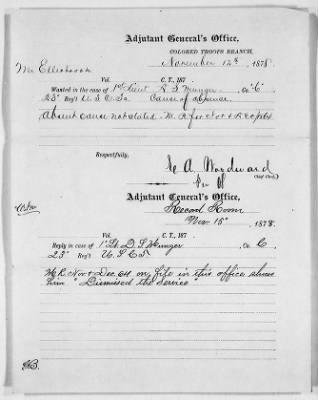 Adjutant General's Office,
COLORED TROOPS BRANCH,
November 12th, 1878
Mr Ellsbrook
Vol. C. T., 187 .
Wanted in the case of 1st Lieut R S Munger Co "C"
23" Reg't U. S. C. Co Cause of absence
Absent cause not stated. M. R. for
Respectfully,
C A Woodward
(Chief Clerk.)
Adjutant General's Office,
Record Room
Nov 15" 1878.
Vol. C. T., 187 .
Reply in case of 1" Lt D. S. Munger Co. C,
23" Reg't U S C T
M R Nov & Dec 64 on file in this office shows
him "Dismissed the Service"